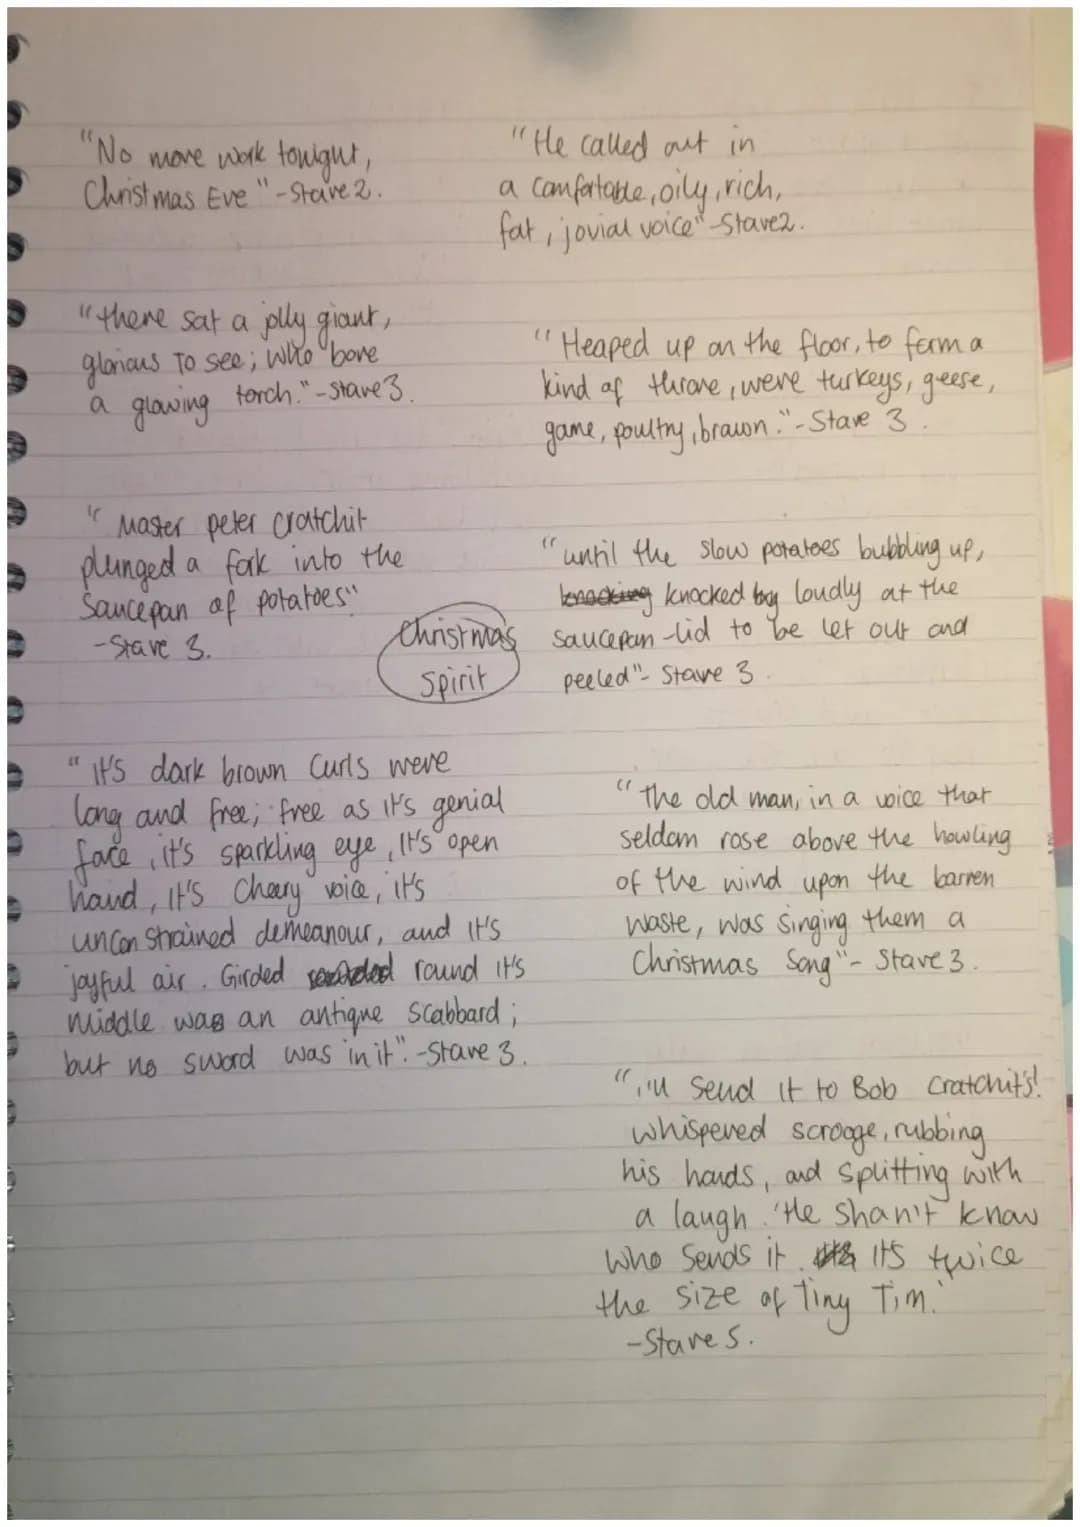 "No more work tonight,
Christmas Eve" -Stave 2.
"He called out in
a comfortable, oily, rich,
fat, jovial voice" -Stave2.
"there sat a jolly giant,
glorious to see; who bore
a glowing torch." -Stave 3.
"Heaped up on the floor, to form a
kind of throne, were turkeys, geese,
game, poultry, brawn." - Stave 3.
"Master peter cratchit
plunged a fork into the
saucepan of potatoes"
-Stave 3.
"until the slow potatoes bubbling up,
knocking knocked loudly at the
saucepan-lid to be let out and
peeled" - Stave 3.
Christmas
Spirit
"It's dark brown curls were
long and free; free as it's genial
face, it's sparkling eye, It's open
hand, It's Cheery voice, it's
unconstrained demeanour, and it's
joyful air. Girded round it's
middle was an antique scabbard;
but no sword was in it". -Stave 3.
"The old man, in a voice that
seldom rose above the howling
of the wind upon the barren
waste, was singing them a
Christmas Song" - Stave 3.
"i'll send it to Bob Cratchit's!
whispered scrooge, rubbing
his hands, and splitting with
a laugh. 'He shan't know
who sends it. It's twice
the size of Tiny Tim.'
-Stave 5.